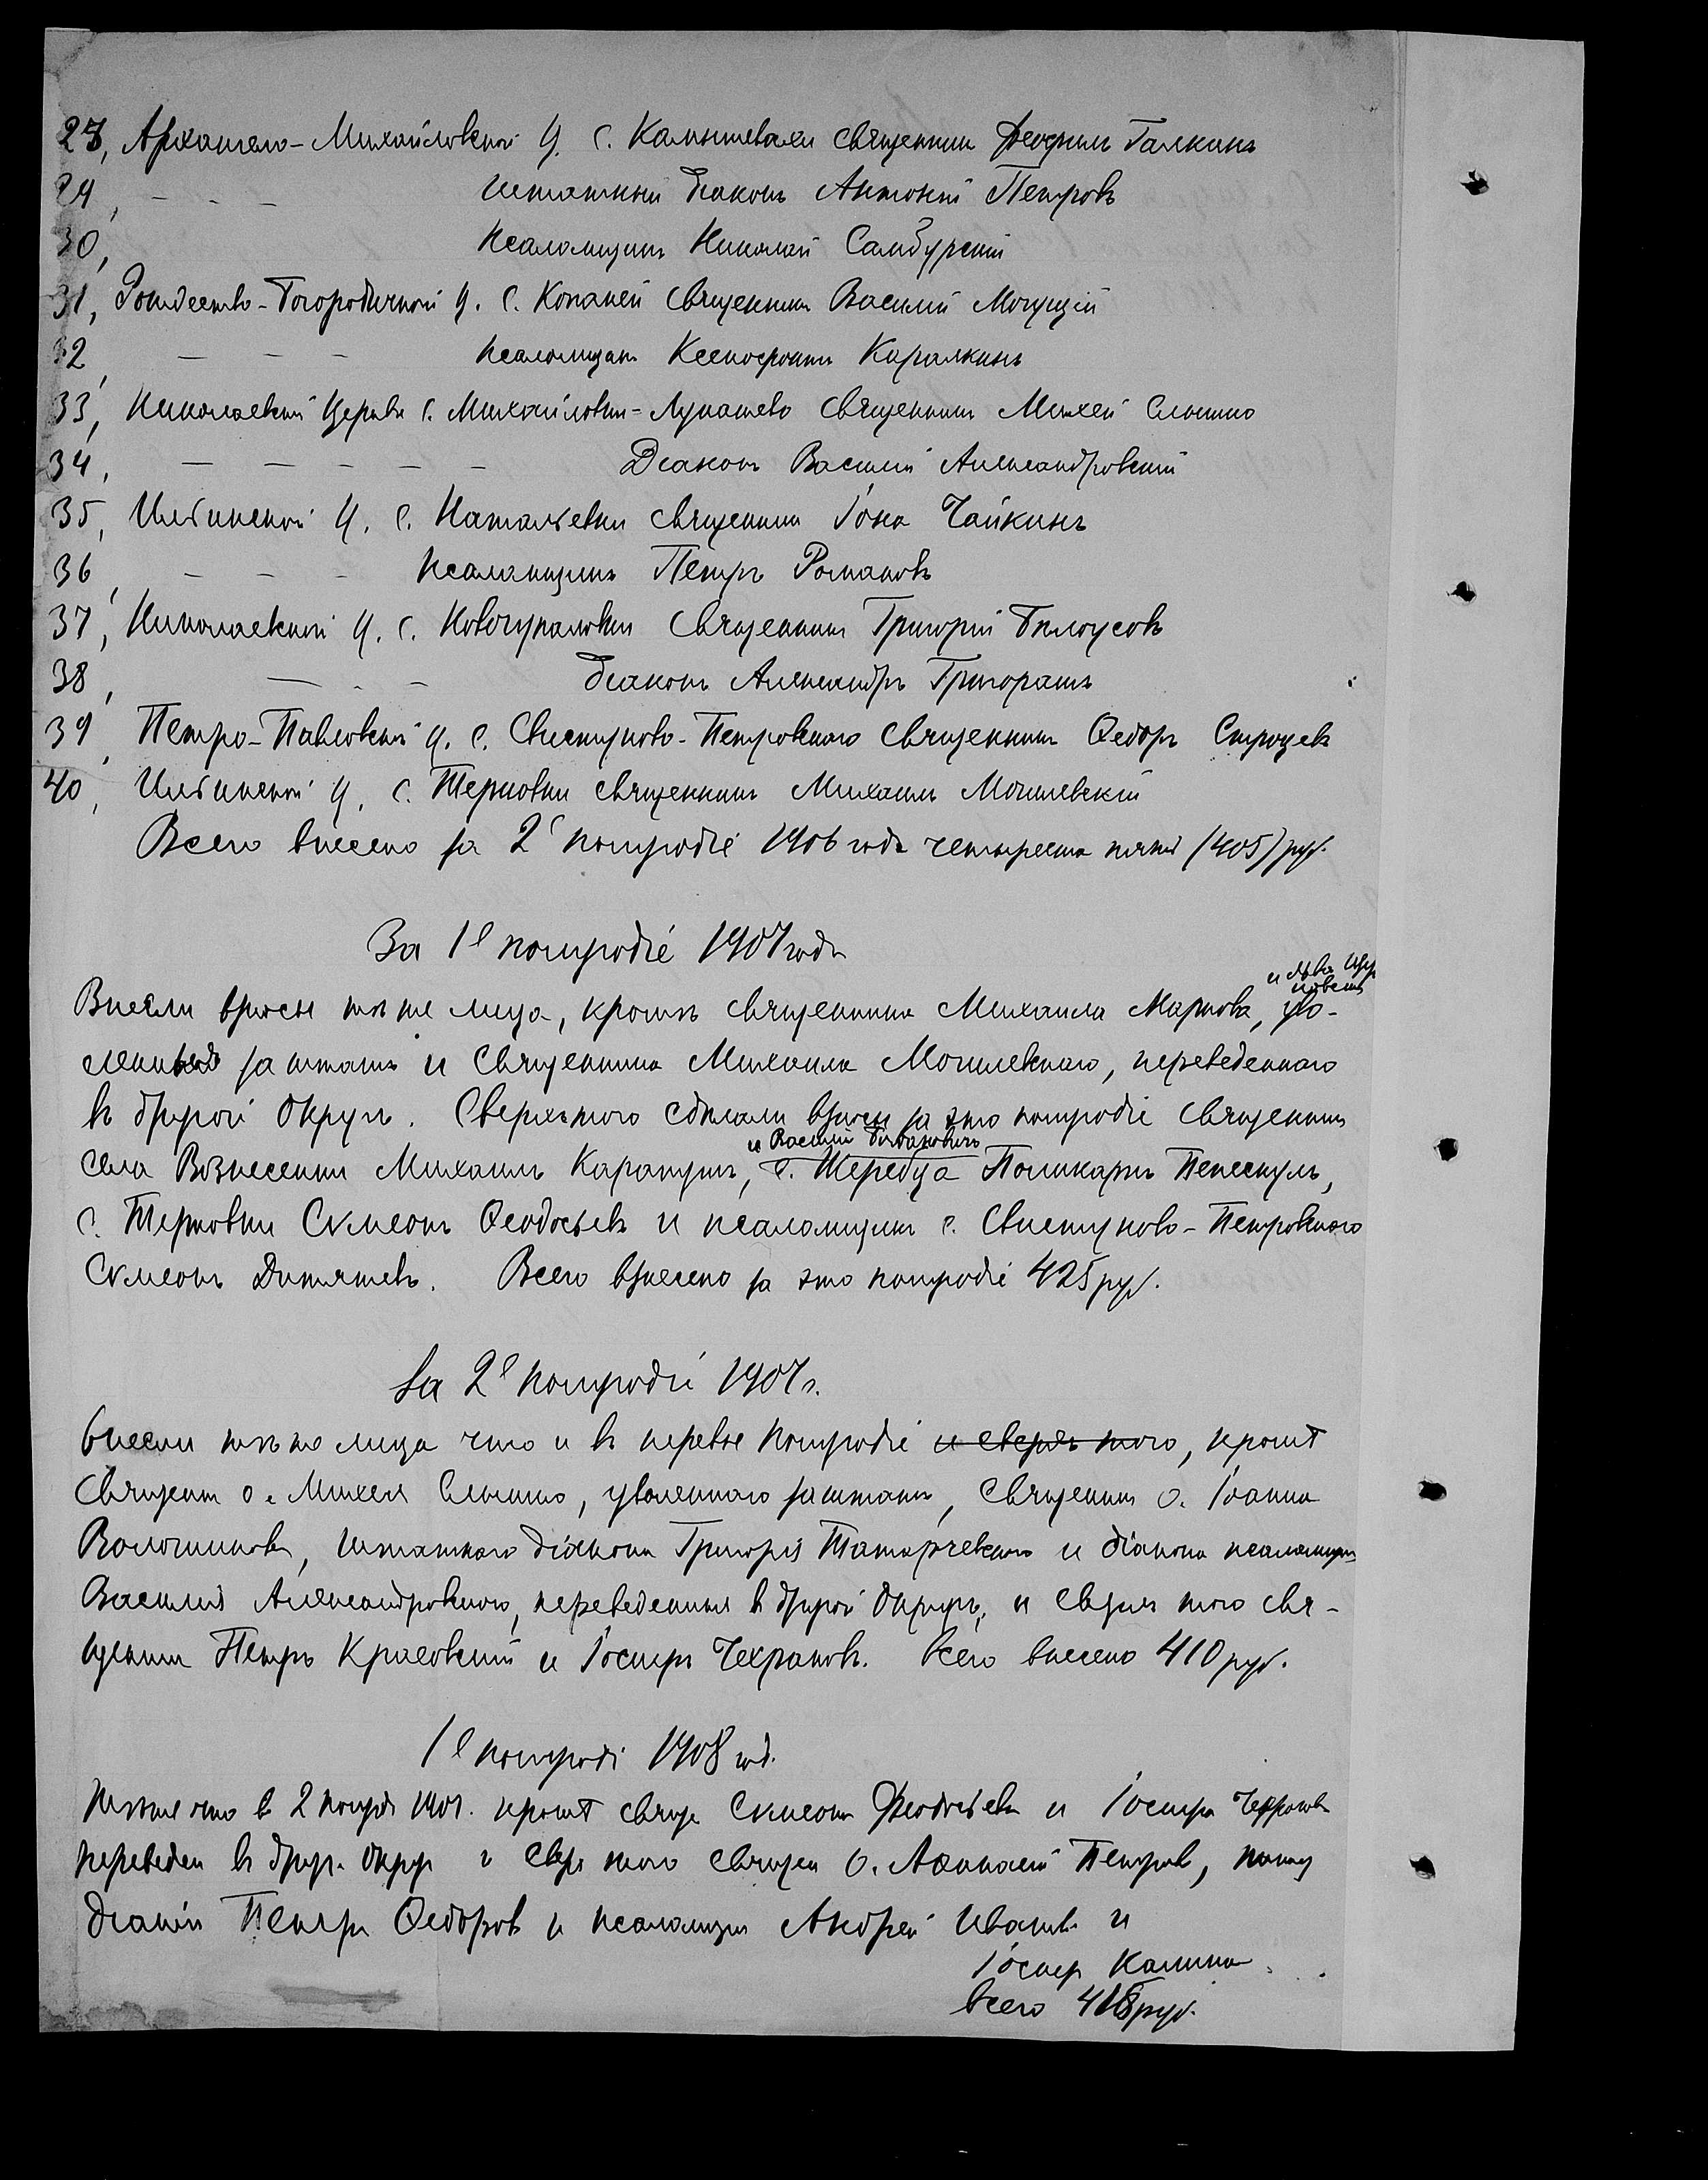 28, Архангело-Михайловской ц. с. Камышевахи священникъ Феофилъ Галкинъ
29, - - - штатный діаконъ Антоній Петровъ
30, псаломщикъ Николай Самбурскій
31, Рождество-Богородичной ц. с. Копаней священникъ Василій Могущій
32, - - - псаломщикъ Ксенофонтъ Каралкинъ
33, Николаевской церкви с. Михайловки-Лукашево священникъ Михей Слышко
34, - - - - - Діаконъ Василій Александровскій
35, Ильинской ц. с. Натальевки священникъ Іона Чайкинъ
36, - - - псаломщикъ Петръ Романовъ
37, Николаевской ц. с. Новогупаловки священникъ Григорій Бѣлоусовъ
38, - - - діаконъ Александръ Григорашъ
39, Петро-Павловской ц. с. Свистуново-Петровского священникъ Ѳедоръ Строцевъ
40, Ильинской ц. с. Терновки священникъ Михаилъ Могилевскій
Всего внесено за 2е полугодіе 1906 года четыреста пять (405) руб.
За 1е полугодіе 1907 года
и Льва
Внесли взносы тѣ же лица, кромѣ священника Михаила Маркова, уво-
за штатъ и священника Михаила Могилевскаго, переведеннаго
въ другой округъ. Сверхъ того сдѣлали взносы за это полугодіе священникъ
и Василій
села Вознесенки Михаилъ Карапушъ, с. Жеребца Поликарпъ Пенескулъ,
с. Терновки Симеонъ Ѳеодосьевъ и псаломщикъ с. Свистуново-Петровскаго
Симеонъ Дитятевъ. Всего взнесено за это полугодіе 425 руб.
За 2е полугодіе 1907 г.
внесли тѣ же лица что и въ первое полугодіе и сверхъ того, кромѣ
священ о. Михея Слышко, уволеннаго за штатъ, священник о. Іоанна
Волошинова, штатного діакона Григорія Татарчевскаго и діакона псаломщик
Василія Александровскаго, переведенныхъ въ другой округъ, и сверхъ того свя-
щенники Петръ Красовскій и Іосифъ Чехрановъ. Всего внесено 410 руб.
1е полугоді 1908 год.
тѣ же что въ 2 полугод 1907. кромѣ свящ Симеона Феодосьева и Іосифа Чехранова
переведен въ друг. округ и сверх того священ о. Аѳанасій Петров,
діакон Петръ Ѳедоров и псаломщик Андрей Иванов и
Іосиф Калина
всего 418 руб.